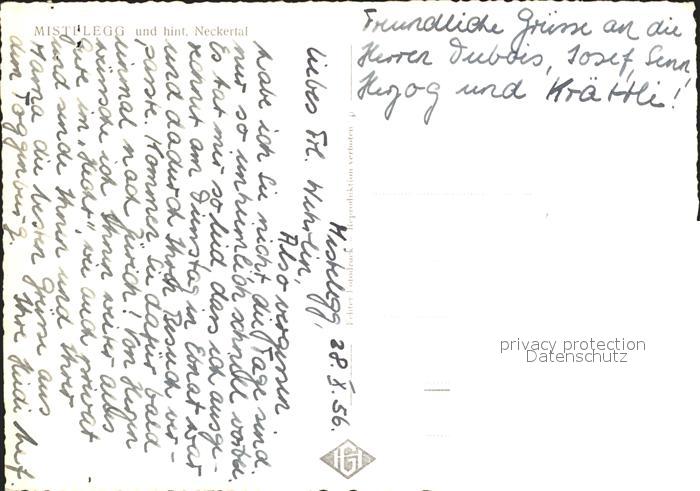 MISTELEGG und hint. Neckertal
Mistelegg, 28. X. 56.
Liebes Frl. Wehrlin,
Also vergessen
habe ich Sie nicht die Tage sind
nur so unheimlich schnell vorbei.
Es tat mir so leid dass ich ausge-
rechnet am Dienstag in Ebnat war
und dadurch Ihren Besuch ver-
passte. Kommen Sie dafür bald
einmal nach Zürich! Von Herzen
wünsche ich Ihnen weiter alles
Gute im "Hecht", wie auch privat
und sende Ihnen und Ihrer
Mama die besten Grüsse aus
dem Toggenburg.
Ihre Heidi
Echter Fotodruck - Reproduktion verboten
Freundliche Grüsse an die
Herren Dubois, Josef, Senn
Herzog und Krättli!
privacy protection
Datenschutz